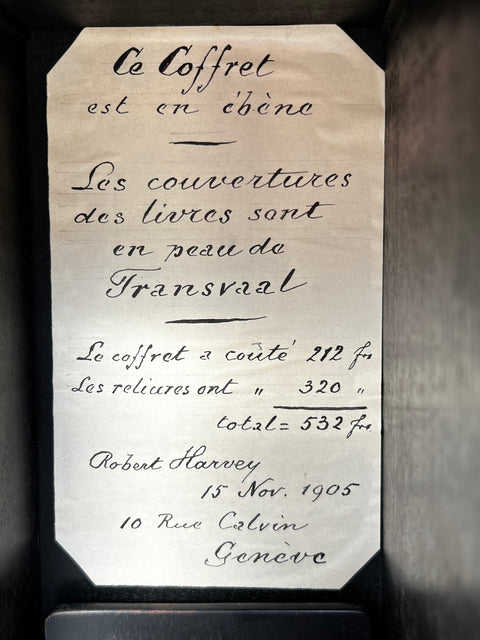 Ce Coffret
est en ébène
Les couvertures
des livres sont
en peau de
Transvaal
Le coffret a coûté 212 frs
Les reliures ont " 320 "
total = 532 frs
Robert Harvey
15 Nov. 1905
10 Rue Calvin
Genève